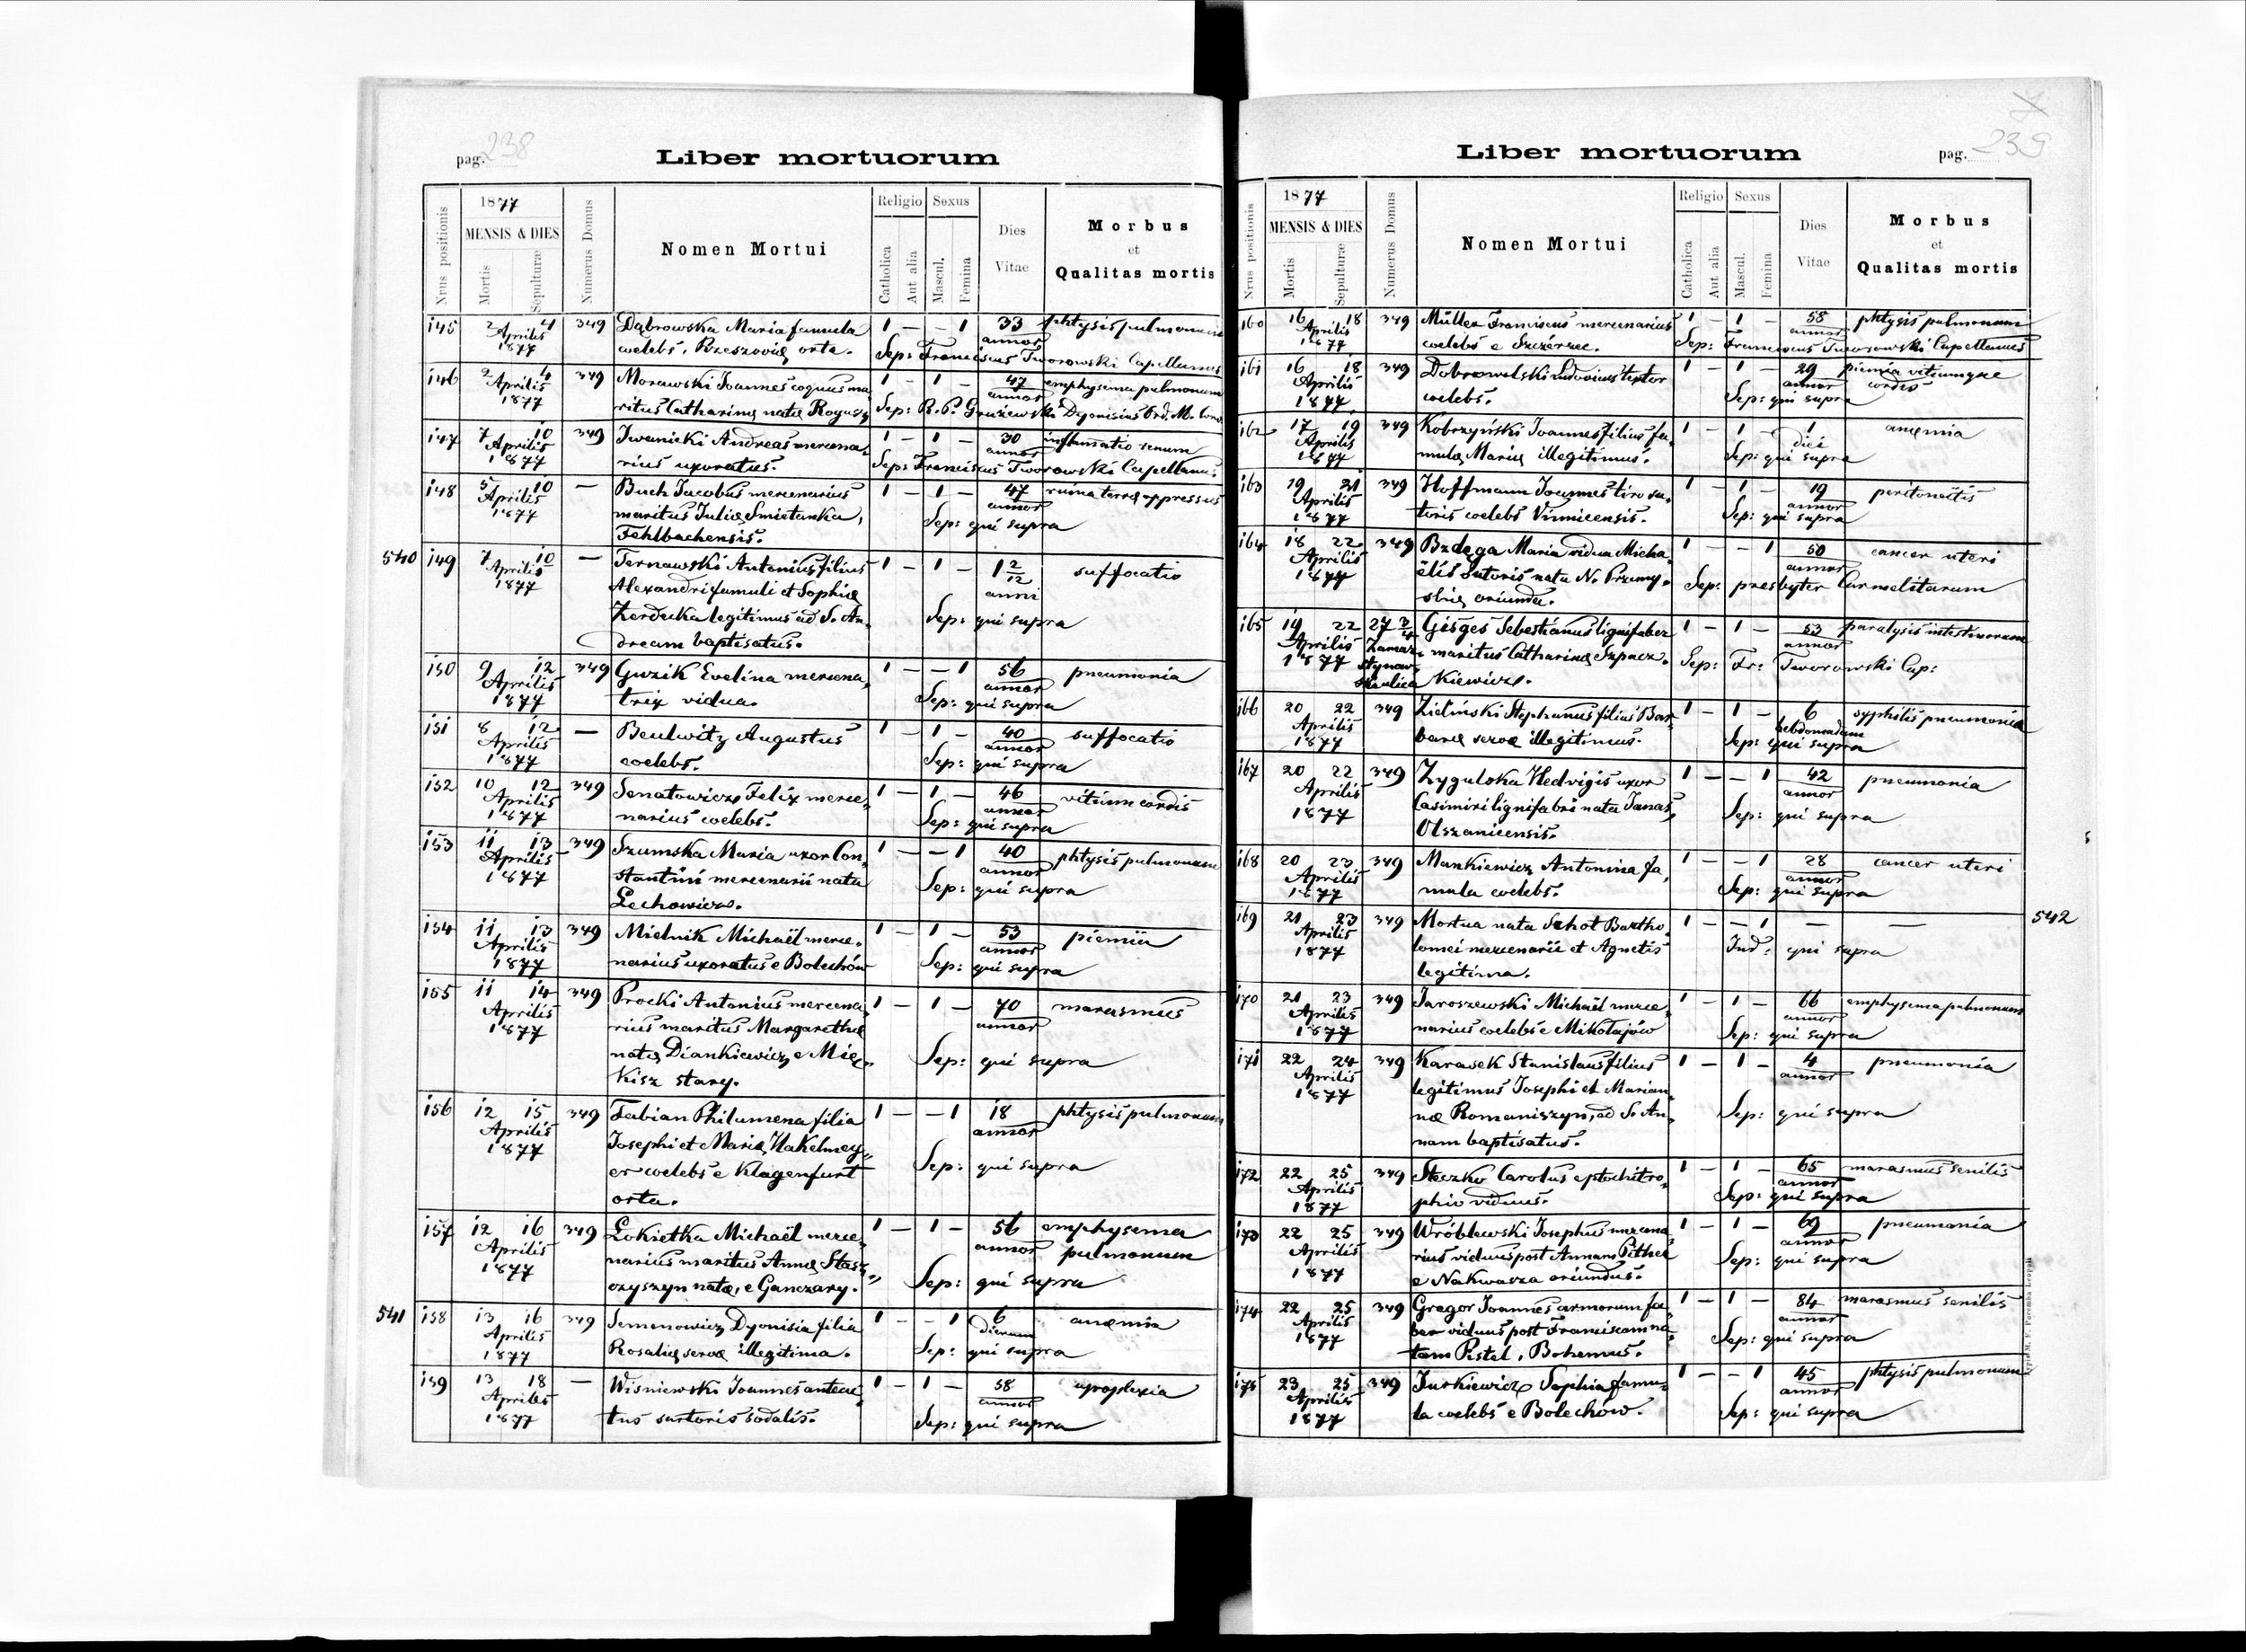 pag. 238
Liber mortuorum
Nrus positionis
1877
MENSIS & DIES
Mortis
Sepulturæ
Numerus Domus
Nomen Mortui
Religio
Catholica
Aut alia
Sexus
Mascul.
Femina
Dies
Vitae
Morbus
et
Qualitas mortis
145 2 4 349 Dąbrowska Maria famula 1 – – 1 33 phtysis pulmonum
Aprilis annor
1877 coelebs, Rzeszovię orta. Sep: Franciscus Tworowski Capellanus
146 2 4 349 Morawski Joannes coquus ma 1 – 1 – 47 emphysema pulmonum
Aprilis annor
1877 ritus Catharinę natę Sep: R. P. Dyonisius Ord. M.
147 7 10 349 Iwanicki Andreas mercena 1 – 1 – 30 inflamatio renum
Aprilis annor
1877 rius uxoratus. Sep: Franciscus Tworowski Capellanus.
148 5 10 – Buch Jacobus mercenarius 1 – 1 – 47 ruina terrę oppressus
Aprilis annor
1877 maritus Julię Smietanka, Sep: qui supra
Fehlbachensis.
540 149 7 10 – Tarnawski Antonius filius 1 – 1 – 1 2/12 suffocatio
Aprilis anni
1877 Alexandri famuli et Sophię
legitimus ad S. An Sep: qui supra
dream baptisatus.
150 9 12 349 Guzik Evelina mercena 1 – – 1 56 pneumonia
Aprilis annor
1877 trix vidua. Sep: qui supra
151 8 12 – Beulwitz Augustus 1 – 1 – 40 suffocatio
Aprilis annor
1877 coelebs. Sep: qui supra
152 10 12 349 Senatowicz Felix merce 1 – 1 – 46 vitium cordis
Aprilis annor
1877 narius coelebs. Sep: qui supra
153 11 13 349 Szumska Maria uxor Con 1 – – 1 40 phtysis pulmonum
Aprilis annor
1877 stantini mercenarii nata Sep: qui supra
Lechowicz.
154 11 13 349 Mielnik Michaël merce 1 – 1 – 53 piemia
Aprilis annor
1877 narius uxoratus e Bolechów Sep: qui supra
155 11 14 349 Procki Antonius mercena 1 – 1 – 70 marasmus
Aprilis annor
1877 rius maritus Margarethę
natę Diankiewicz e Mię Sep: qui supra
kisz stary.
156 12 15 349 Fabian Philumena filia 1 – – 1 18 phtysis pulmonum
Aprilis annor
1877 Josephi et Marię Hakelmey
er coelebs e Klagenfurt Sep: qui supra
orta.
157 12 16 349 Łokietka Michaël merce 1 – 1 – 56 emphysema
Aprilis annor pulmonum
1877 narius maritus Annę Stasz
czyszyn natæ, e Ganczary. Sep: qui supra
541 158 13 16 349 Semenowicz Dyonisia filia 1 – – 1 6 anæmia
Aprilis dierum
1877 Rosalię servæ illegitima. Sep: qui supra
159 13 18 – Wisniewski Joannes anteac 1 – 1 – 58 apoplexia
Aprilis annor
1877 tus sartoris sodalis. Sep: qui supra
Liber mortuorum
pag. 239
Nrus positionis
1877
MENSIS & DIES
Mortis
Sepulturæ
Numerus Domus
Nomen Mortui
Religio
Catholica
Aut alia
Sexus
Mascul.
Femina
Dies
Vitae
Morbus
et
Qualitas mortis
160 16 18 349 Müller Franciscus mercenarius 1 – 1 – 58 phtysis pulmonum
Aprilis annor
1877 coelebs e Szczérzec. Sep: Franciscus Tworowski Capellanus
161 16 18 349 Dobrowolski Ludovicus textor 1 – 1 – 29 piemia vitiumque
Aprilis annor cordis
1877 coelebs. Sep: qui supra
162 17 19 349 Kobrzyński Joannes filius fa 1 – 1 – 1 anęmia
Aprilis diei
1877 mulę Marię illegitimus. Sep: qui supra
163 19 21 349 Hoffmann Joannes tiro su 1 – 1 – 19 peritoneitis
Aprilis annor
1877 toris coelebs Vinnicensis. Sep: qui supra
164 18 22 349 Bzdęga Maria vidua Micha 1 – – 1 50 cancer uteri
Aprilis annor
1877 ëlis sutoris nata N. Przemy Sep: presbyter Carmelitarum
slię oriunda.
165 19 22 27 3/4 Gisges Sebestianus lignifaber 1 – 1 – 53 paralysis intestinorum
Aprilis Zamar annor
1877 stynow maritus Catharinę Szpacz Sep: Fr: Tworowski Cap:
ska ulica kiewicz.
166 20 22 349 Zieliński Stephanus filius Bar 1 – 1 – 6 syphilis pneumonia
Aprilis hebdomadum
1877 baræ servæ illegitimus. Sep: qui supra
167 20 22 349 Zygulska Hedvigis uxor 1 – – 1 42 pneumonia
Aprilis annor
1877 Casimiri lignifabri nata Janas, Sep: qui supra
Olszanicensis.
168 20 23 349 Mankiewicz Antonina fa 1 – – 1 28 cancer uteri
Aprilis annor
1877 mula coelebs. Sep: qui supra
169 21 23 349 Mortua nata Schot Bartho 1 – – 1 – – 542
Aprilis
1877 lomei mercenarii et Agnetis Ind: qui supra
legitima.
170 21 23 349 Jaroszewski Michaël merce 1 – 1 – 66 emphysema pulmonum
Aprilis annor
1877 narius coelebs e Mikołajów Sep: qui supra
171 22 24 349 Karasek Stanislaus filius 1 – 1 – 4 pneumonia
Aprilis annor
1877 legitimus Josephi et Marian
næ Romaniszyn, ad S. An Sep: qui supra
nam baptisatus.
172 22 25 349 Steczko Carolus e ptochotro 1 – 1 – 65 marasmus senilis
Aprilis annor
1877 phio viduus. Sep: qui supra
173 22 25 349 Wróblewski Josephus mercena 1 – 1 – 69 pneumonia
Aprilis annor
1877 rius viduus post Annam Pithel Sep: qui supra
e Nakwasza oriundus.
174 22 25 349 Gregor Joannes armorum fa 1 – 1 – 84 marasmus senilis
Aprilis annor
1877 ber viduus post Franciscam na Sep: qui supra
tam Pistel, Bohemus.
175 23 25 349 Jurkiewicz Sophia famu 1 – – 1 45 phtysis pulmonum
Aprilis annor
1877 la coelebs e Bolechów. Sep: qui supra